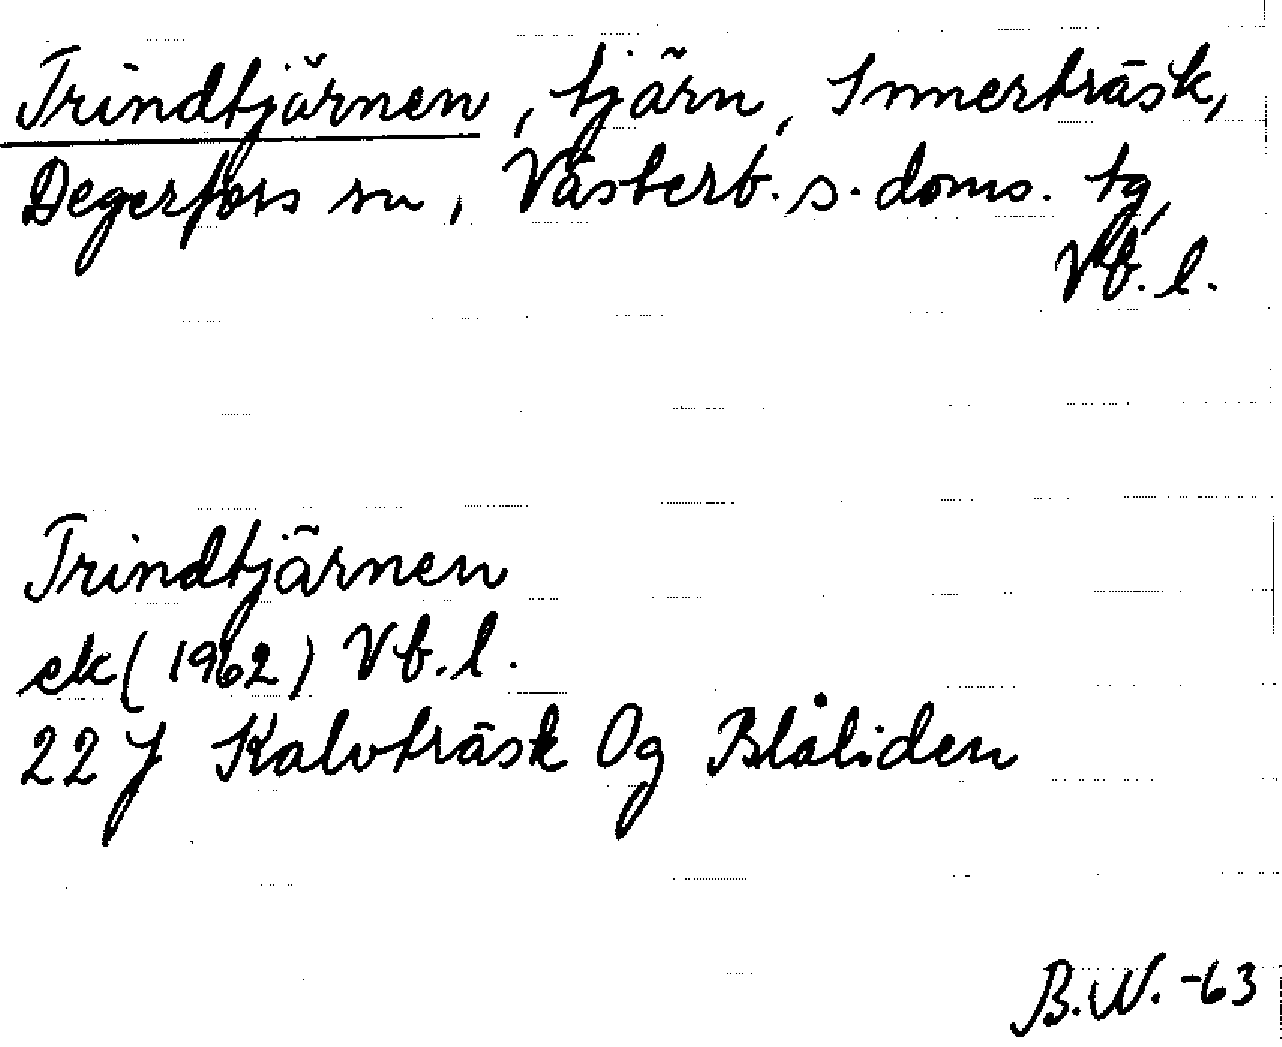 Trindtjärnen, tjärn, Innerträsk,
Degerfors sn, Västerb. s. doms. tg,
Vb. l.
Trindtjärnen
ek (1962) Vb. l.
22 J Kalvträsk Og Blåliden
B.W. -63